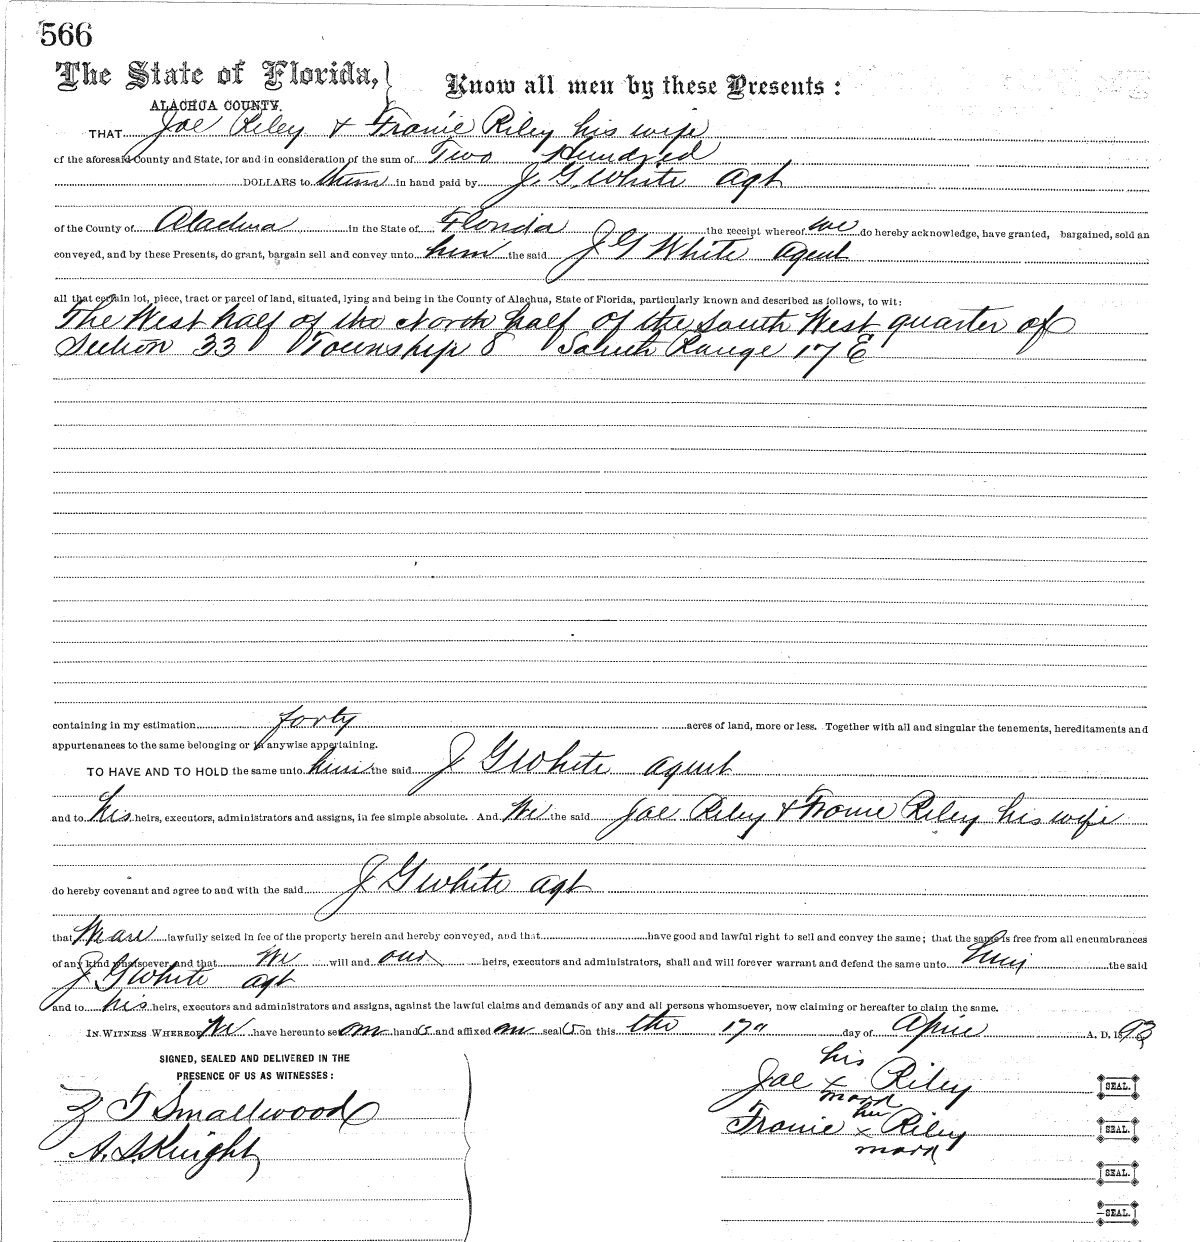 566
The State of Florida,
ALACHUA COUNTY.
Know all men by these Presents :
THAT Joe Riley & Franie Riley his wife
of the aforesaid County and State, for and in consideration of the sum of Two Hundred
DOLLARS to them in hand paid by J. G. White agt
of the County of Alachua in the State of Florida the receipt whereof we do hereby acknowledge, have granted, bargained, sold an
conveyed, and by these Presents, do grant, bargain sell and convey unto him the said J G White agent
all that certain lot, piece, tract or parcel of land, situated, lying and being in the County of Alachua, State of Florida, particularly known and described as follows, to wit:
The West half of the North half of the South West quarter of
Section 33 Township 8 South Range 17 E
containing in my estimation forty acres of land, more or less. Together with all and singular the tenements, hereditaments and
appurtenances to the same belonging or in anywise appertaining.
TO HAVE AND TO HOLD the same unto him the said J G White agent
and to his heirs, executors, administrators and assigns, in fee simple absolute. And We the said Joe Riley & Franie Riley his wife
do hereby covenant and agree to and with the said J G White agt
that We are lawfully seized in fee of the property herein and hereby conveyed, and that have good and lawful right to sell and convey the same; that the same is free from all encumbrances
of any kind whatsoever, and that We will and our heirs, executors and administrators, shall and will forever warrant and defend the same unto him the said
J G White agt
and to his heirs, executors and administrators and assigns, against the lawful claims and demands of any and all persons whomsoever, now claiming or hereafter to claim the same.
IN WITNESS WHEREOF We have hereunto set our hands and affixed our seals on this the 17" day of April A. D. 1893
SIGNED, SEALED AND DELIVERED IN THE
PRESENCE OF US AS WITNESSES :
his
Joe x Riley SEAL.
mark
Z T Smallwood
her
Franie x Riley SEAL.
mark
A. S. Knight
SEAL.
SEAL.